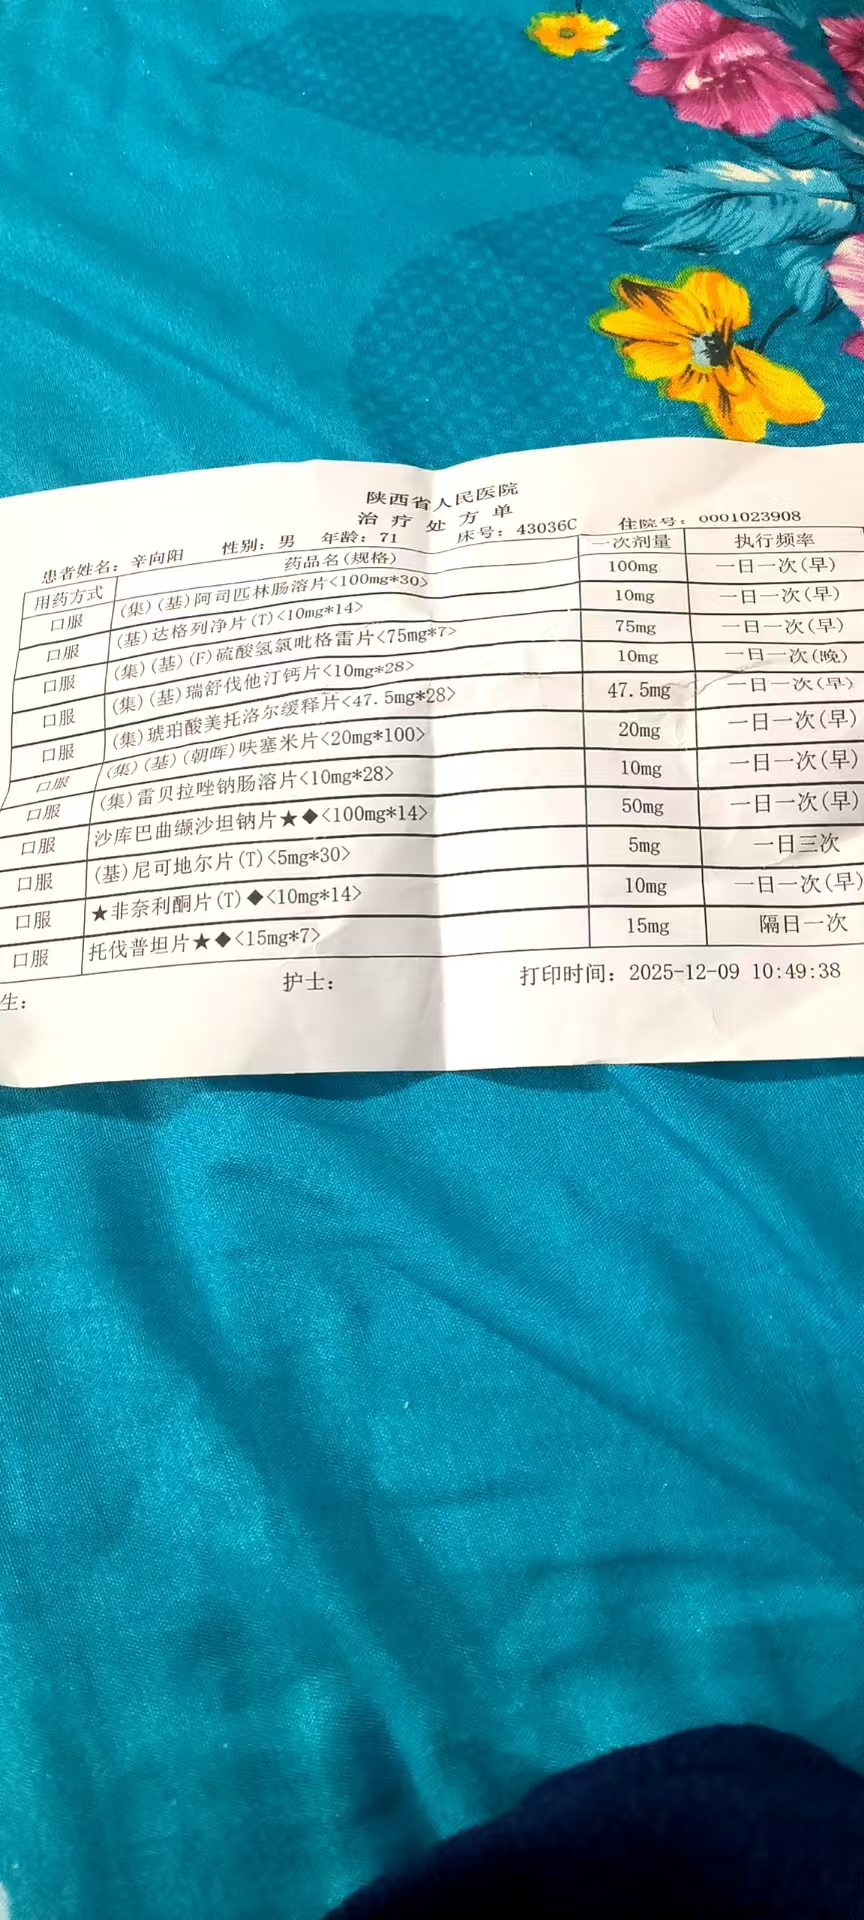 陕西省人民医院
治疗处方单
患者姓名：辛向阳 性别：男 年龄：71 床号：43036C 住院号：0001023908
用药方式 药品名(规格) 一次剂量 执行频率
口服 (集)(基)阿司匹林肠溶片<100mg*30> 100mg 一日一次(早)
口服 (基)达格列净片(T)<10mg*14> 10mg 一日一次(早)
口服 (集)(基)(F)硫酸氢氯吡格雷片<75mg*7> 75mg 一日一次(早)
口服 (集)(基)瑞舒伐他汀钙片<10mg*28> 10mg 一日一次(晚)
口服 (集)琥珀酸美托洛尔缓释片<47.5mg*28> 47.5mg 一日一次(早)
口服 (集)(基)(朝晖)呋塞米片<20mg*100> 20mg 一日一次(早)
口服 (集)雷贝拉唑钠肠溶片<10mg*28> 10mg 一日一次(早)
口服 沙库巴曲缬沙坦钠片★◆<100mg*14> 50mg 一日一次(早)
口服 (基)尼可地尔片(T)<5mg*30> 5mg 一日三次
口服 ★非奈利酮片(T)◆<10mg*14> 10mg 一日一次(早)
口服 托伐普坦片★◆<15mg*7> 15mg 隔日一次
生： 护士： 打印时间：2025-12-09 10:49:38